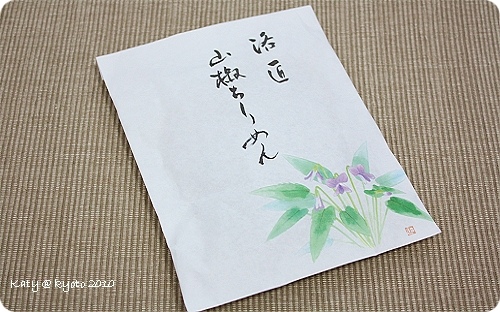 洛匠
山椒ちりめん
Katy @ kyoto 2010